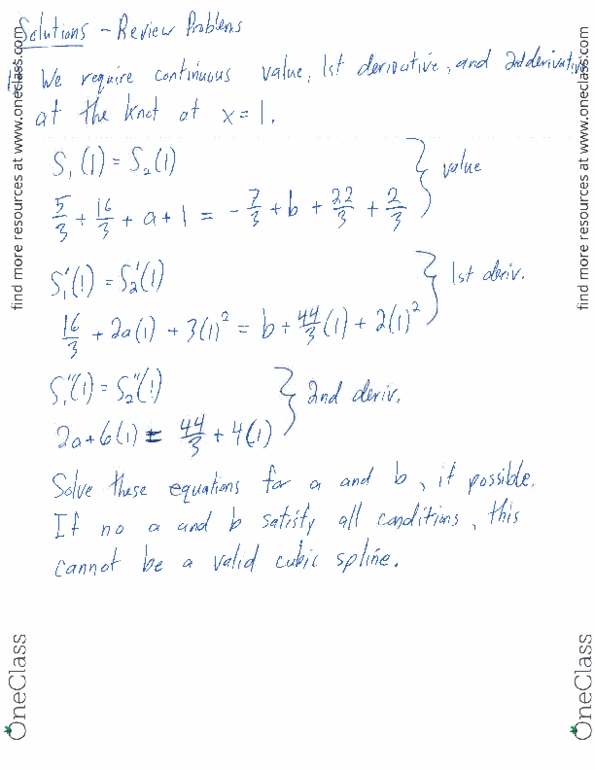 Solutions - Review Problems
1. We require continuous value, 1st derivative, and 2nd derivative
at the knot at x = 1.
S₁(1) = S₂(1)
5/3 + 16/3 + a + 1 = -7/3 + b + 22/3 + 2/3 } value
S₁'(1) = S₂'(1)
16/3 + 2a(1) + 3(1)² = b + 44/3(1) + 2(1)² } 1st deriv.
S₁''(1) = S₂''(1)
2a + 6(1) = 44/3 + 4(1) } 2nd deriv.
Solve these equations for a and b, if possible.
If no a and b satisfy all conditions, this
cannot be a valid cubic spline.
find more resources at www.oneclass.com
find more resources at www.oneclass.com
OneClass
OneClass